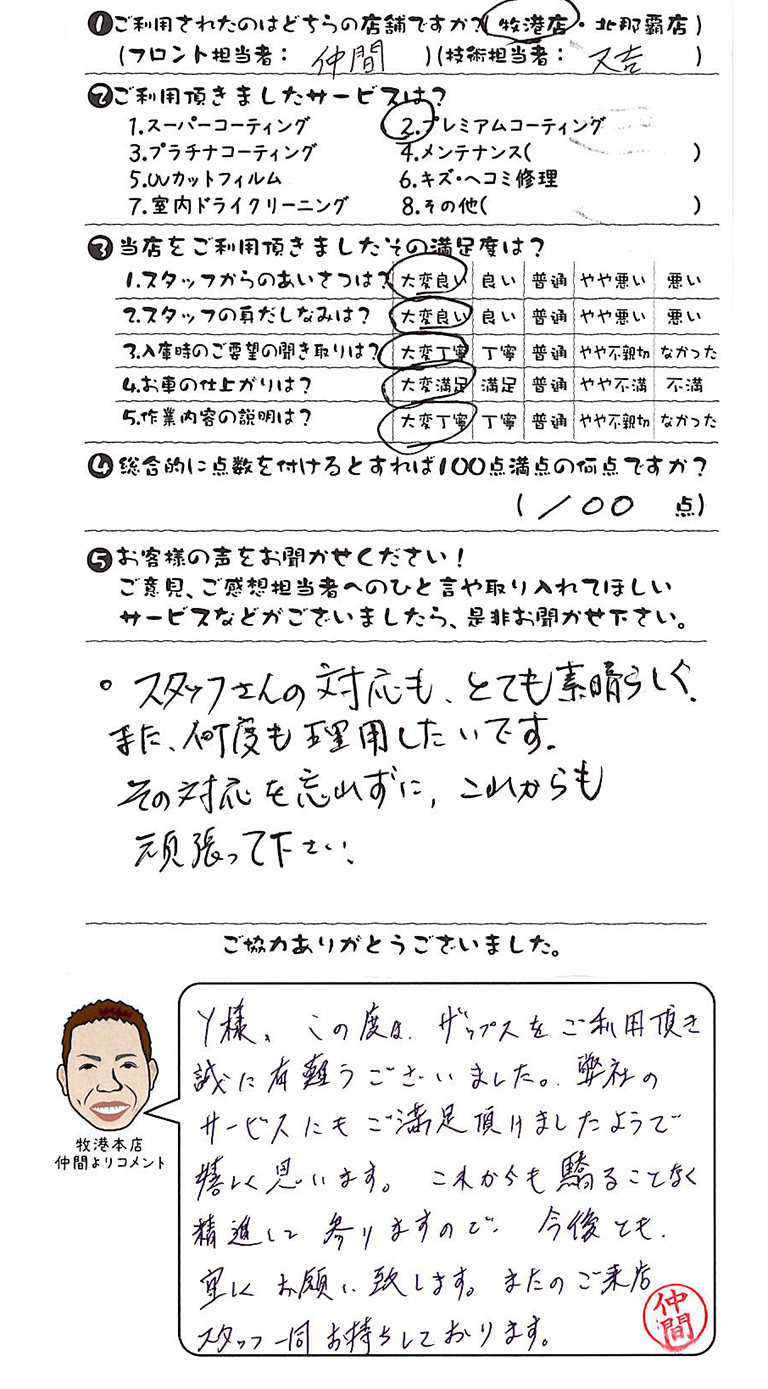 ❶ご利用されたのはどちらの店舗ですか?(牧港店・北那覇店)
(フロント担当者: 仲間 )(技術担当者: 又吉 )
❷ご利用頂きましたサービスは?
1.スーパーコーティング 2.プレミアムコーティング
3.プラチナコーティング 4.メンテナンス( )
5.UVカットフィルム 6.キズ・ヘコミ修理
7.室内ドライクリーニング 8.その他( )
❸当店をご利用頂きましたその満足度は?
1.スタッフからのあいさつは? 大変良い 良い 普通 やや悪い 悪い
2.スタッフの身だしなみは? 大変良い 良い 普通 やや悪い 悪い
3.入庫時のご要望の聞き取りは? 大変丁寧 丁寧 普通 やや不親切 なかった
4.お車の仕上がりは? 大変満足 満足 普通 やや不満 不満
5.作業内容の説明は? 大変丁寧 丁寧 普通 やや不親切 なかった
❹総合的に点数を付けるとすれば100点満点の何点ですか?
(100 点)
❺お客様の声をお聞かせください!
ご意見、ご感想担当者へのひと言や取り入れてほしい
サービスなどがございましたら、是非お聞かせ下さい。
。スタッフさんの対応も、とても素晴らしく、
また、何度も利用したいです。
その対応を忘れずに、これからも
頑張って下さい、
ご協力ありがとうございました。
Y様、この度は、ザップスをご利用頂き
誠に有難うございました。弊社の
サービスにもご満足頂けましたようで
嬉しく思います。これからも驕ることなく
精進して参りますので、今後とも、
宜しくお願い致します。またのご来店
スタッフ一同お待ちしております。
牧港本店
仲間よりコメント
仲間